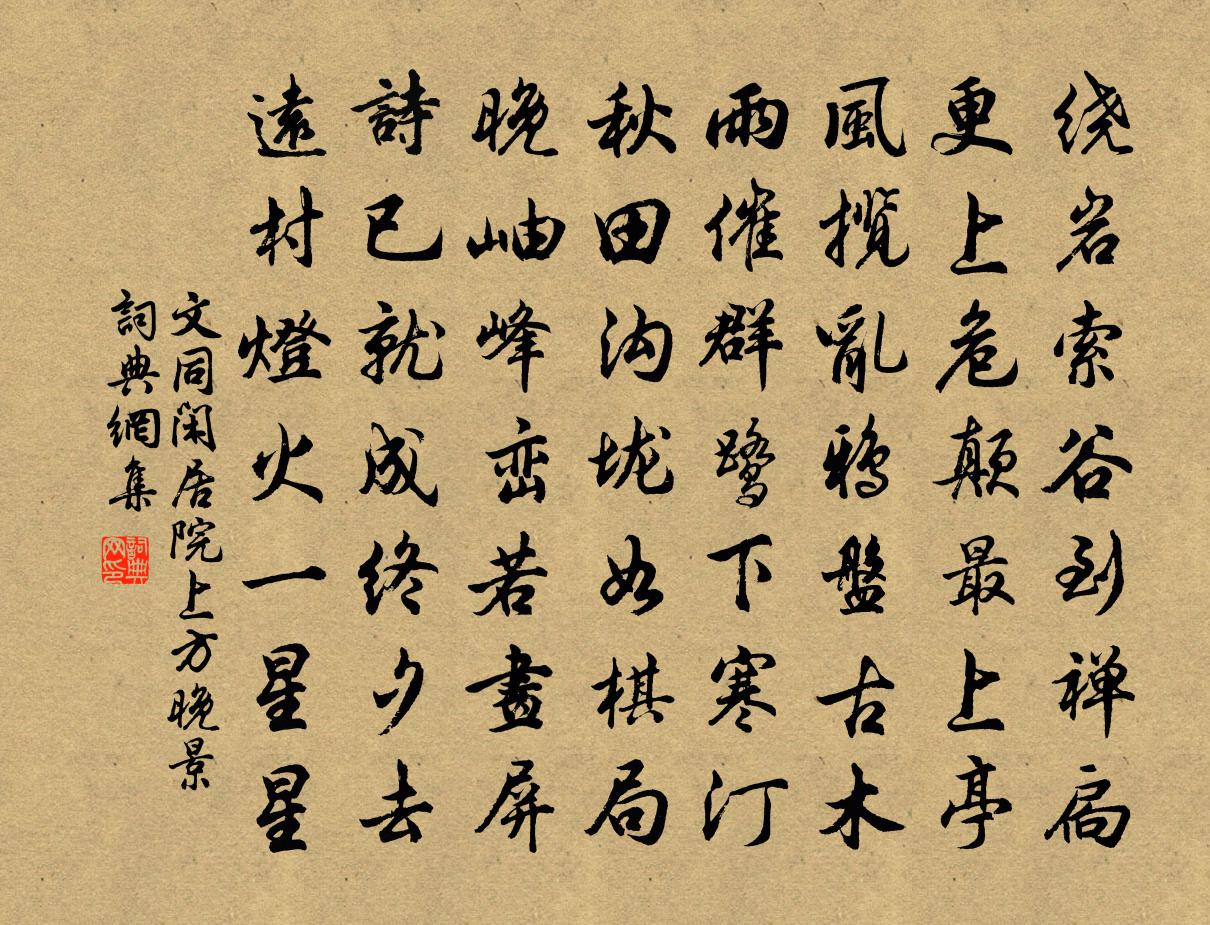 绕岩索谷到禅扃
更上危颠最上亭
風揽亂鴉盤古木
雨催群鹭下寒汀
秋田沟垅如棋局
晚岫峰峦若畫屏
詩已就成终夕去
遠村燈火一星星
文同闲居院上方晚景
詞典網集
詞典网印